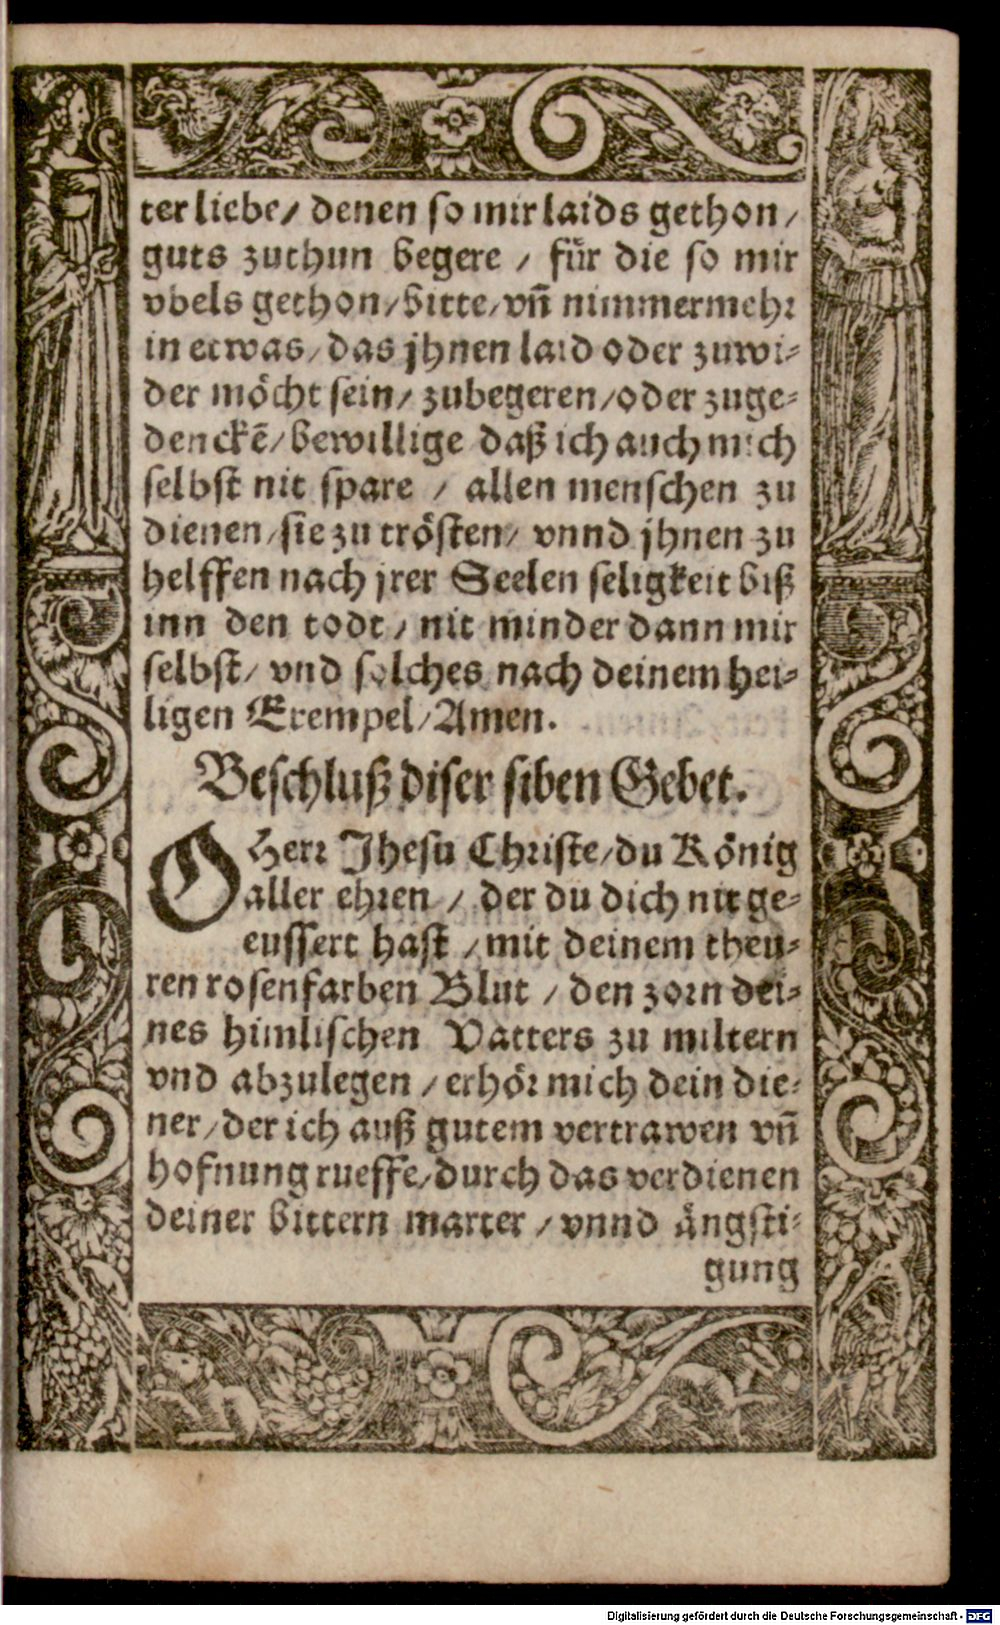 ter liebe/ denen so mir laids gethon/
guts zuthun begere / für die so mir
vbels gethon/bitte/vñ nimmermehr
in etwas/das jhnen laid oder zuwi-
der möcht sein/ zubegeren/oder zuge-
denckẽ/bewillige daß ich auch mich
selbst nit spare / allen menschen zu
dienen/sie zu trösten/ vnnd jhnen zu
helffen nach jrer Seelen seligkeit biß
inn den todt/ nit minder dann mir
selbst/ vnd solches nach deinem hei-
ligen Exempel/Amen.
Beschluß diser siben Gebet.
O Herr Jhesu Christe/du König
aller ehren / der du dich nit ge-
eussert hast /mit deinem theu-
ren rosenfarben Blut / den zorn dei-
nes himlischen Vatters zu miltern
vnd abzulegen /erhör mich dein die-
ner/der ich auß gutem vertrawen vñ
hofnung rueffe/durch das verdienen
deiner bittern marter / vnnd ängsti-
gung
Digitalisierung gefördert durch die Deutsche Forschungsgemeinschaft - DFG